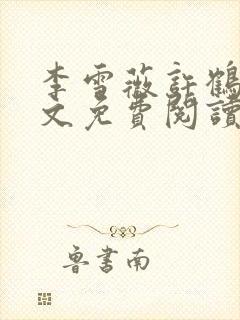 李雪薇許鶴
文免費閱讀
魯書南